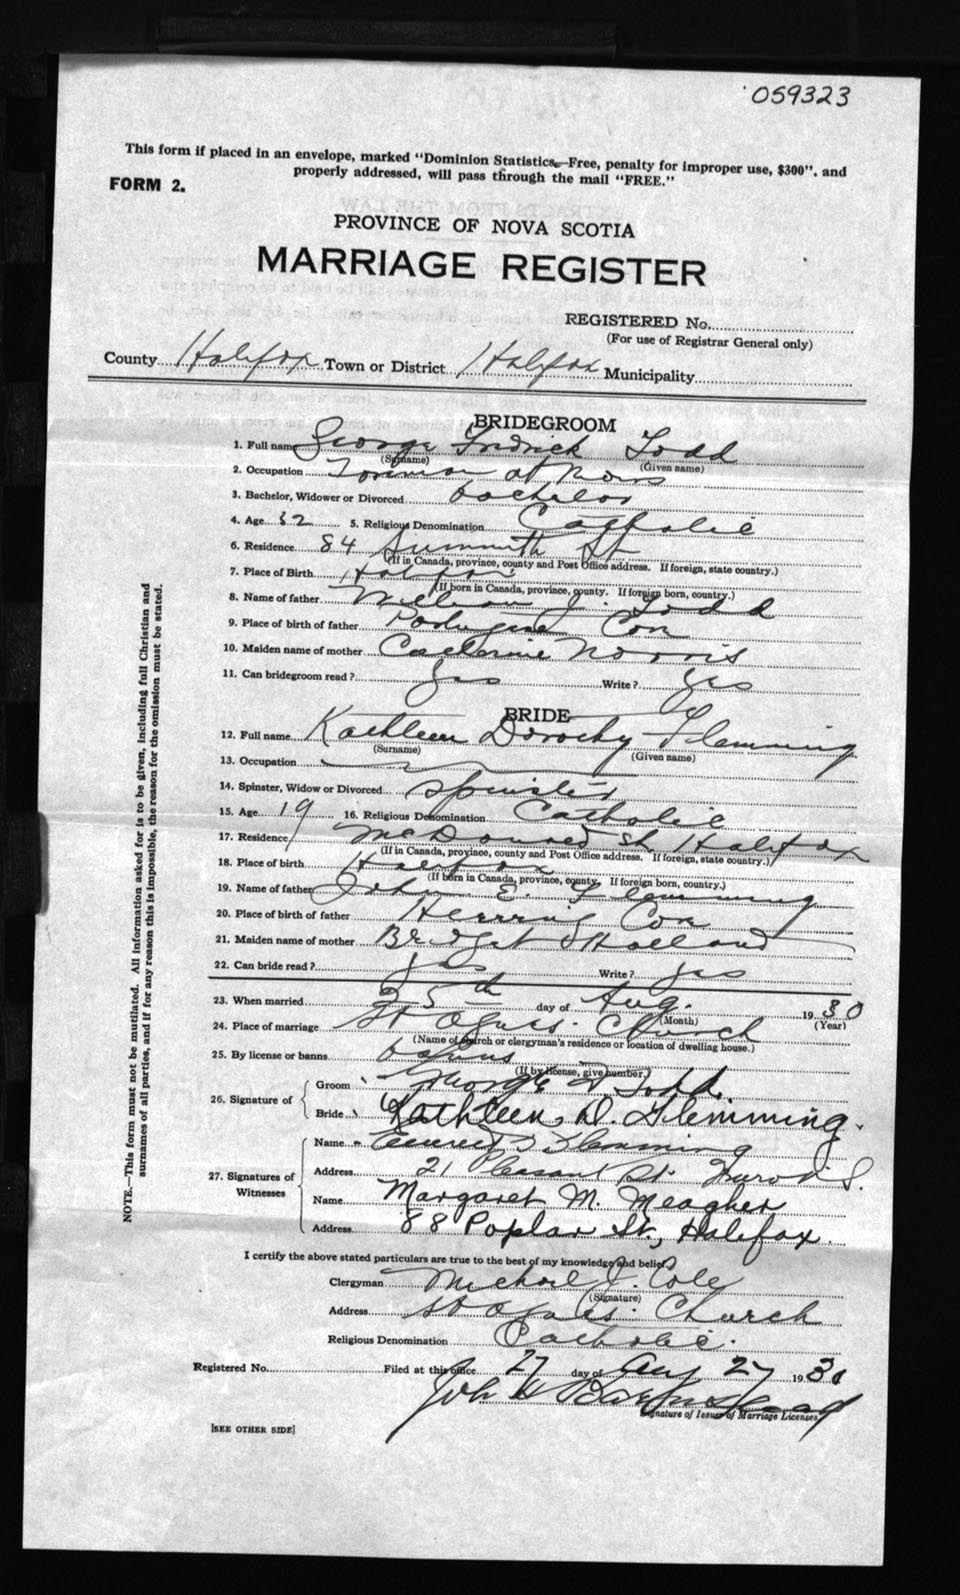 059323
This form if placed in an envelope, marked "Dominion Statistics—Free, penalty for improper use, $300", and
properly addressed, will pass through the mail "FREE."
FORM 2.
PROVINCE OF NOVA SCOTIA
MARRIAGE REGISTER
REGISTERED No.
(For use of Registrar General only)
County Halifax Town or District Halifax Municipality
BRIDEGROOM
1. Full name George Fredrick Todd
(Surname) (Given name)
2. Occupation at
3. Bachelor, Widower or Divorced bachelor
4. Age 32 5. Religious Denomination Catholic
6. Residence 84 St
(If in Canada, province, county and Post Office address. If foreign, state country.)
7. Place of Birth Halifax
(If born in Canada, province, county. If foreign born, country.)
8. Name of father J. Todd
9. Place of birth of father Cov
10. Maiden name of mother Catherine Norris
11. Can bridegroom read? yes Write? yes
BRIDE
12. Full name Kathleen Dorothy Flemming
(Surname) (Given name)
13. Occupation
14. Spinster, Widow or Divorced spinster
15. Age 19 16. Religious Denomination Catholic
17. Residence McDonald St Halifax
(If in Canada, province, county and Post Office address. If foreign, state country.)
18. Place of birth Halifax
(If born in Canada, province, county. If foreign born, country.)
19. Name of father John E. Flemming
20. Place of birth of father Herring Cov
21. Maiden name of mother Bridget Holland
22. Can bride read? yes Write? yes
23. When married 25th day of Aug. 1930
(Month) (Year)
24. Place of marriage St Agnes. Church
(Name of church or clergyman's residence or location of dwelling house.)
25. By license or banns banns
(If by license, give number.)
26. Signature of
Groom George F Todd.
Bride Kathleen, D. Flemming.
27. Signatures of Witnesses
Name Flemming
Address 21 Pleasant St. Truro N.S.
Name Margaret M. Meagher
Address 88 Poplar St., Halifax.
I certify the above stated particulars are true to the best of my knowledge and belief.
Clergyman Michael J. Cole
(Signature)
Address St Agnes. Church
Religious Denomination Catholic.
Registered No. Filed at this office 27 day of Aug 27 1930
John H
Signature of Issuer of Marriage Licenses
[SEE OTHER SIDE]
NOTE.—This form must not be mutilated. All information asked for is to be given, including full Christian and
surnames of all parties, and if for any reason this is impossible, the reason for the omission must be stated.